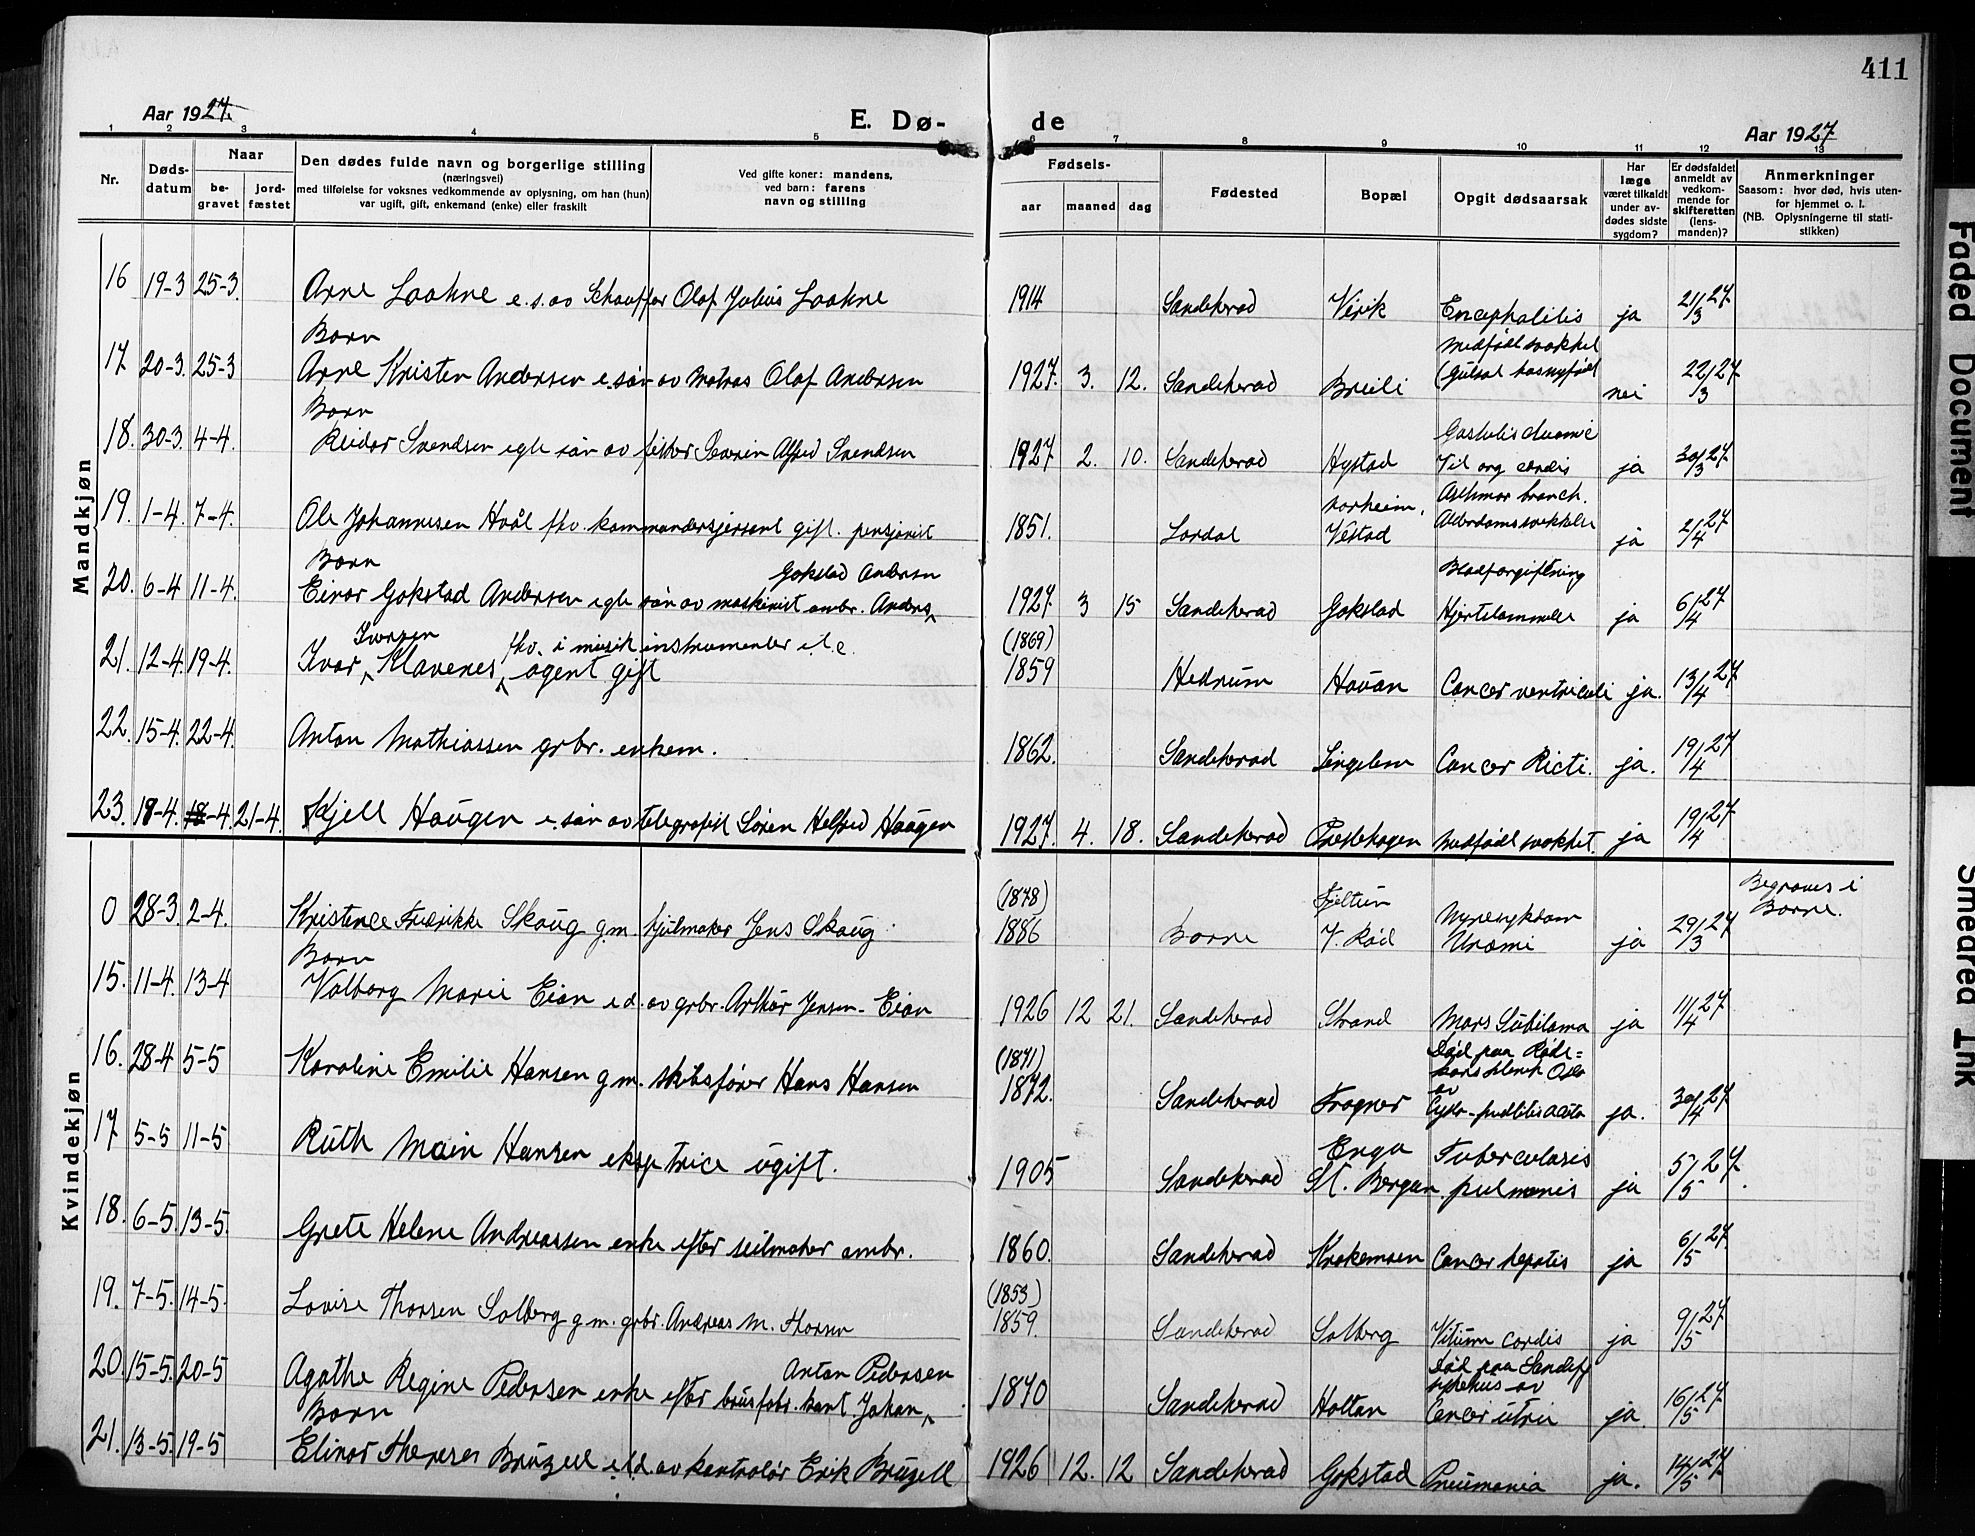 411
Aar 1927.
E. Dø-
de
Aar 1927
1 2 3 4 5 6 7 8 9 10 11 12 13
Nr.
Døds-
datum
Naar
be-
gravet
jord-
fæstet
Den dødes fulde navn og borgerlige stilling
(næringsvei)
med tilføielse for voksnes vedkommende av oplysning, om han (hun)
var ugift, gift, enkemand (enke) eller fraskilt
Ved gifte koner: mandens,
ved barn: farens
navn og stilling
Fødsels-
aar maaned dag
Fødested
Bopæl
Opgit dødsaarsak
Har
læge
været tilkaldt
under av-
dødes sidste
sygdom?
Er dødsfaldet
anmeldt av
vedkom-
mende for
skifteretten
(lens-
manden)?
Anmerkninger
Saasom: hvor død, hvis uten-
for hjemmet o. l.
(NB. Oplysningerne til stati-
stikken)
Mandkjøn
16 19-3 25-3. Arne Laahne e.s. av Schauffør Olaf Julius Laahne 1914 Sandeherad Virik Encephalitis ja 21/3 27
Barn
medfødt svakhet
17 20-3. 25-3 Arne Kristen Andersen e. søn av Matros Olaf Andersen 1927. 3. 12. Sandeherad Breili nei 22/3 27
Barn
18. 30-3. 4-4. Reidar Svendsen egte søn av fisker Severin Alfred Svendsen 1927 2. 10. Sandeherad Hystad ja 30/3 27
Asthmar branch.
19. 1-4. 7-4. Ole Johannesen Hvål fhv. kommandersjersent gift. pensjonist 1851. Lardal Vestad ja 2/4 27
Barn
Gokstad Andersen
Blodforgiftning
20. 6-4 11-4. Einar Gokstad Andersen egte søn av maskinist ombr. Anders 1927 3 15 Sandeherad Gokstad Hjertelammelse ja 6/4 27
Iversen fhv. i musikinstrumenter
(1869)
21. 12-4. 19-4. Ivar Klavenes agent gift 1859 Hedrum Havan Cancer ventriculi ja. 13/4 27
22. 15-4. 22-4. Anton Mathiassen grbr. enkem. 1862. Sandeherad Lingelem Cancer Ricti. ja. 19/4 27
23. 18-4. 18-4. 21-4. Kjell Haugen e. søn av telegrafist Søren Helfred Haugen 1927. 4. 18. Sandeherad Preslehagen medfødt svakhet. ja 19/4 27
Kvindekjøn
(1878)
Begraves i
Borre.
0 28-3. 2-4. Kristence Fredrikke Skaug g.m. hjulmaker Jens Skaug 1886 Borre Nyresykdom
Uræmi ja 29/3 27
Barn
15. 11-4. 13-4 Valborg Marie Eian e.d. av grbr. Arthur Jensen-Eian 1926 12 21. Sandeherad Strand Mors Subitama ja 11/4 27
(1871)
16. 28-4 5-5 Karoline Emilie Hansen g.m. skibsfører Hans Hansen 1872. Sandeherad Fragner ja. 30/4 27
Enga Tuberculosis
17 5-5 11-5 Ruth Main Hansen ekspetrice ugift. 1905 Sandeherad St. Bergan pulmonis ja 5/5 27.
18. 6-5. 13-5. Grete Helene Andreassen enke efter seilmaker ombr. 1860. Sandeherad Krokemoen Cancer hepatis ja 6/5 27.
(1853)
19. 7-5. 14-5. Lovise Thorsen Solberg g.m. grbr. Andreas M. Thorsen 1859. Sandeherad Solberg Vitium cordis ja 9/5 27
Anton Pedersen
Død paa Sandefj
sykehus av
20. 15-5. 20-5 Agathe Regine Pedersen enke efter brusfabr.kant Johan 1870 Sandeherad Holtan Cancer uteri ja 16/5 27
Barn
21. 13-5. 19-5 Elinor Therese Bruzell e.d. av kontrolør Erik Bruzell 1926 12. 12 Sandeherad Gokstad Pneumonia ja. 14/5 27
Faded Document
Smeared Ink